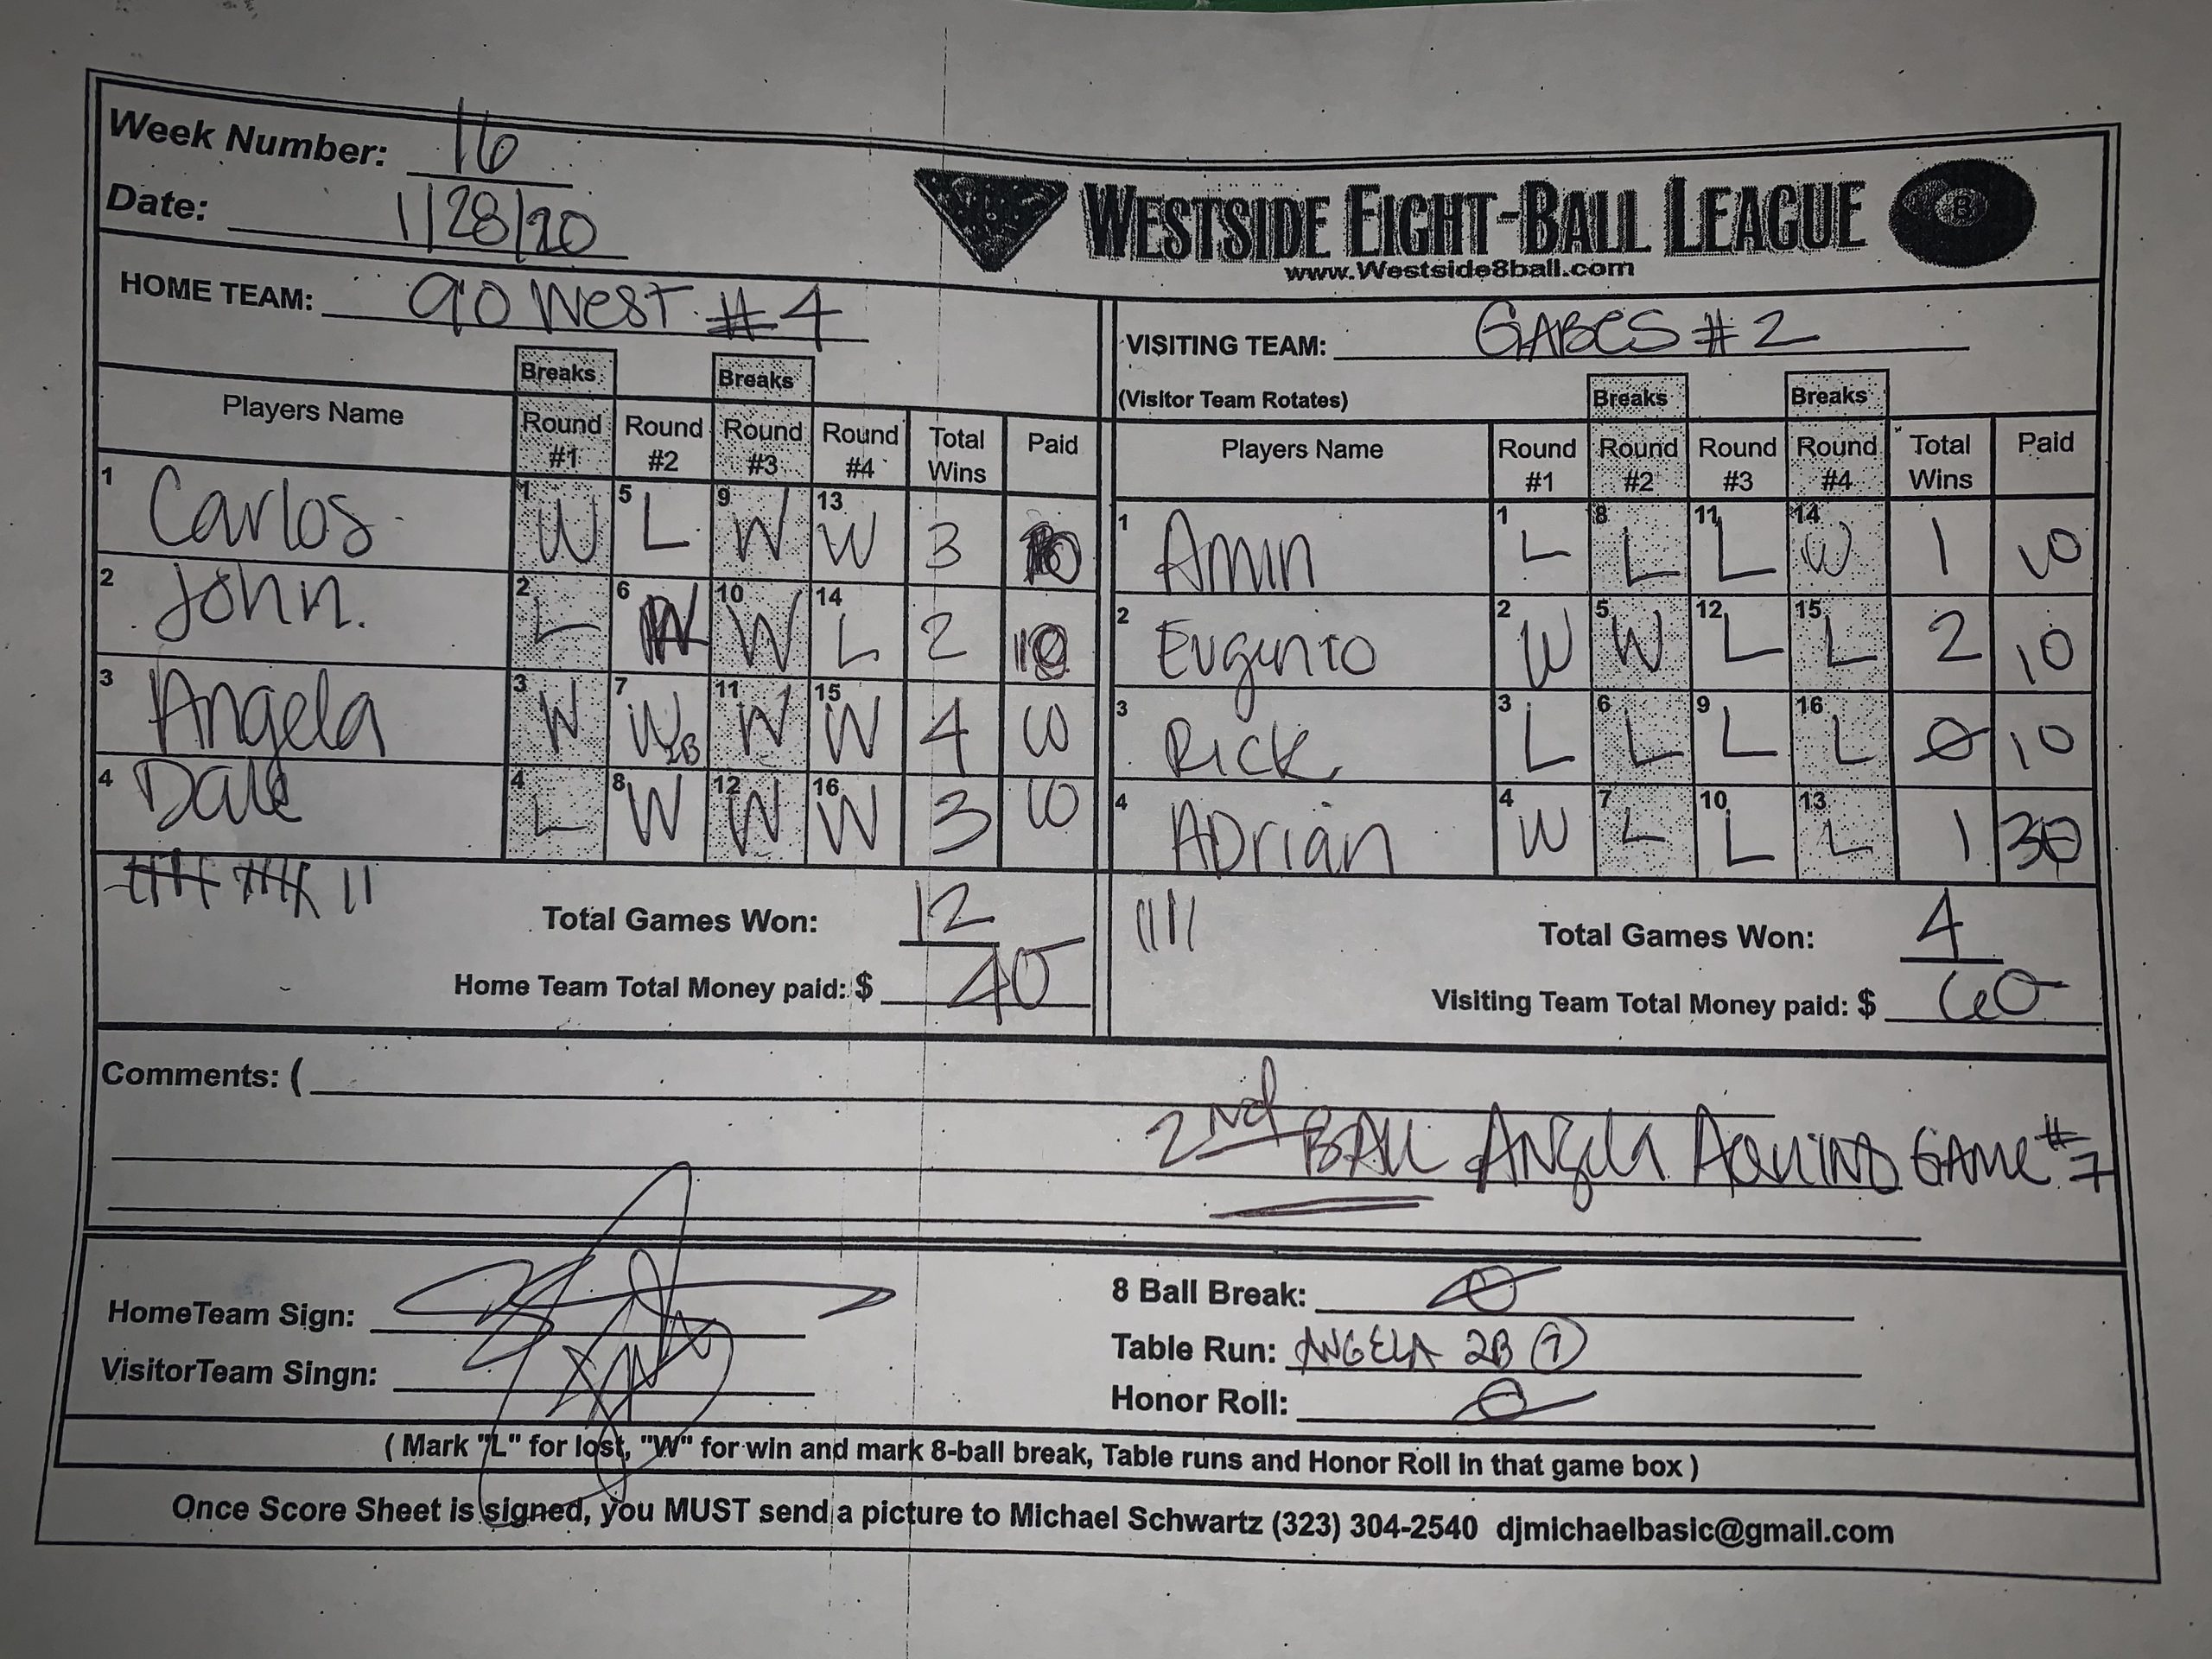 Week Number: 16
Date: 1/28/20
WESTSIDE EIGHT-BALL LEAGUE
www.Westside8ball.com
HOME TEAM: 90 West #4
VISITING TEAM: GABES #2
(Visitor Team Rotates)
Breaks Breaks
Players Name Round #1 Round #2 Round #3 Round #4 Total Wins Paid
1 Carlos 1 W 5 L 9 W 13 W 3 10
2 John. 2 L 6 W 10 W 14 L 2 10
3 Angela 3 W 7 W 2B 11 W 15 W 4 10
4 Dale 4 L 8 W 12 W 16 W 3 10
Total Games Won: 12
Home Team Total Money paid: $ 40
Breaks Breaks
Players Name Round #1 Round #2 Round #3 Round #4 Total Wins Paid
1 Amin 1 L 8 L 11 L 14 W 1 10
2 Eugenio 2 W 5 W 12 L 15 L 2 10
3 Rick 3 L 6 L 9 L 16 L 0 10
4 ADrian 4 W 7 L 10 L 13 L 1 30
Total Games Won: 4
Visiting Team Total Money paid: $ 60
Comments: (
2nd BALL Angela Aquino GAME #7
HomeTeam Sign:
VisitorTeam Singn:
8 Ball Break: 0
Table Run: ANGELA 2B 7
Honor Roll: 0
( Mark "L" for lost, "W" for win and mark 8-ball break, Table runs and Honor Roll in that game box )
Once Score Sheet is signed, you MUST send a picture to Michael Schwartz (323) 304-2540 djmichaelbasic@gmail.com